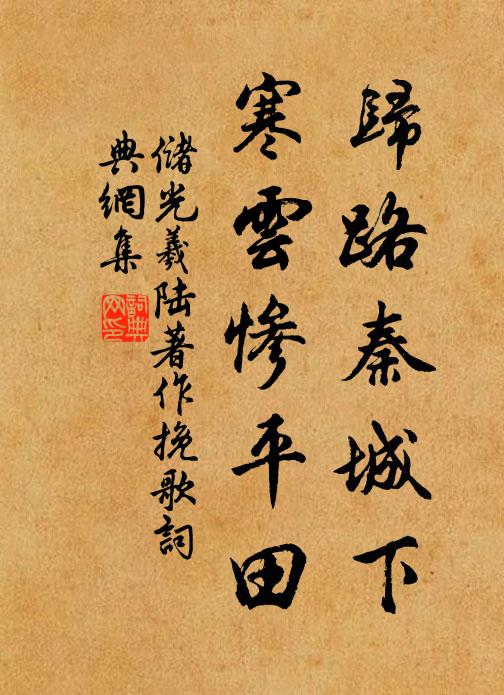 歸路秦城下
寒雲慘平田
儲光羲陸著作挽歌詞
典網集
詞典网印